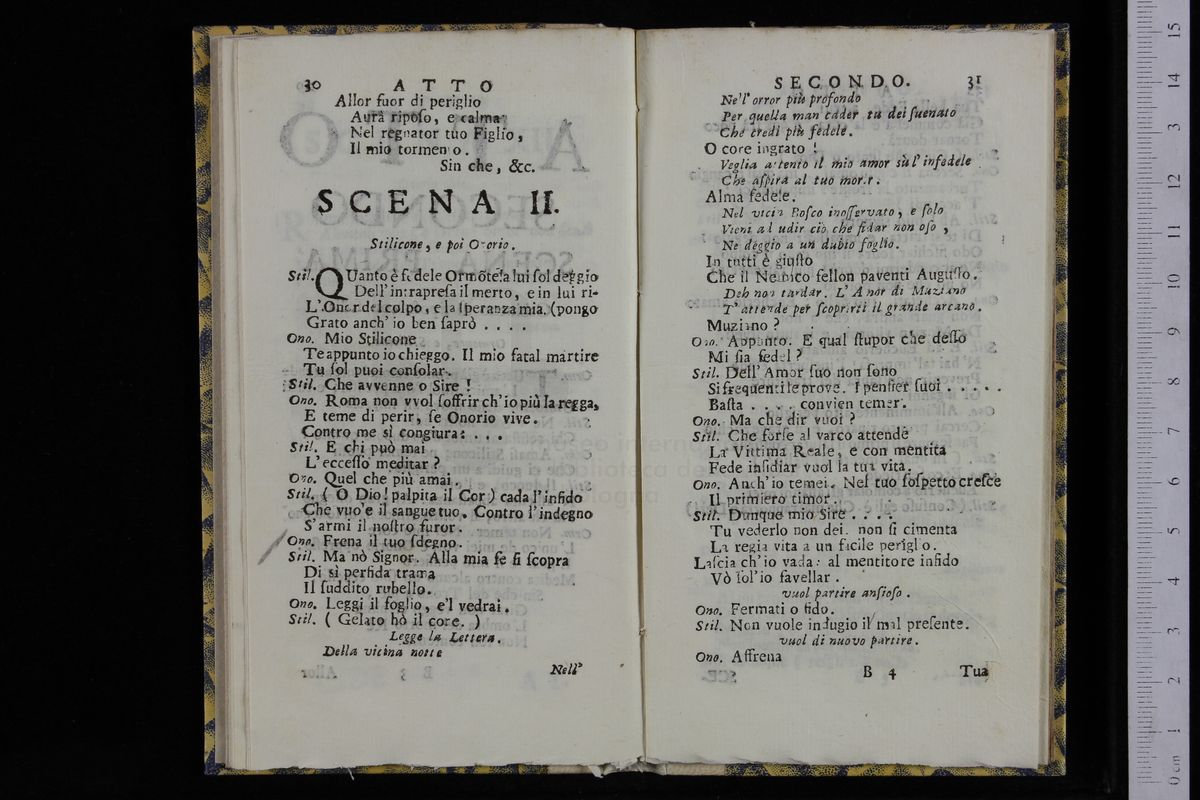 30 ATTO
Allor fuor di periglio
Aurà riposo, e calma
Nel regnator tuo Figlio,
Il mio tormento.
Sin che, &c.
SCENA II.
Stilicone, e poi Onorio.
Stil. QUanto è fedele Ormõte! a lui sol deggio
Dell' intrapresa il merto, e in lui ri-
L'Onor del colpo, e la speranza mia. (pongo
Grato anch' io ben saprò . . . .
Ono. Mio Stilicone
Te appunto io chieggo. Il mio fatal martire
Tu sol puoi consolar.
Stil. Che avvenne o Sire !
Ono. Roma non vvol soffrir ch'io più la regga,
E teme di perir, se Onorio vive.
Contro me si congiura: . . .
Stil. E chi può mai
L'eccesso meditar ?
Ono. Quel che più amai.
Stil. ( O Dio! palpita il Cor ) cada l'infido
Che vuo'e il sangue tuo. Contro l'indegno
S'armi il nostro furor.
Ono. Frena il tuo sdegno.
Stil. Ma nò Signor. Alla mia fe si scopra
Di sì perfida trama
Il suddito rubello.
Ono. Leggi il foglio, e'l vedrai.
Stil. ( Gelato hò il core. )
Legge la Lettera.
Della vicina notte
Nell'
SECONDO. 31
Nell' orror più profondo
Per quella man cader tu dei suenato
Che credi più fedele.
O core ingrato !
Veglia attento il mio amor sùl' infedele
Che aspira al tuo morir.
Alma fedele.
Nel vicin Bosco inosservato, e solo
Vieni ad udir ciò che fidar non oso ,
Ne deggio a un dubio foglio.
In tutti è giusto
Che il Nemico fellon paventi Augusto.
Deh non tardar. L' Amor di Muziano
T' attende per scoprirti il grande arcano.
Muziano ?
Ono. Appunto. E qual stupor che desso
Mi sia fedel ?
Stil. Dell' Amor suo non sono
Si frequenti le prove. I pensier suoi . . . . .
Basta . . . . convien temer.
Ono. Ma che dir vuoi ?
Stil. Che forse al varco attende
La Vittima Reale, e con mentita
Fede insidiar vuol la tua vita.
Ono. Anch'io temei. Nel tuo sospetto cresce
Il primiero timor.
Stil. Dunque mio Sire . . . .
Tu vederlo non dei. non si cimenta
La regia vita a un facile periglio.
Lascia ch'io vada: al mentitore infido
Vò sol'io favellar.
vuol partire ansioso.
Ono. Fermati o fido.
Stil. Non vuole indugio il mal presente.
vuol di nuovo partire.
Ono. Affrena
B 4 Tua